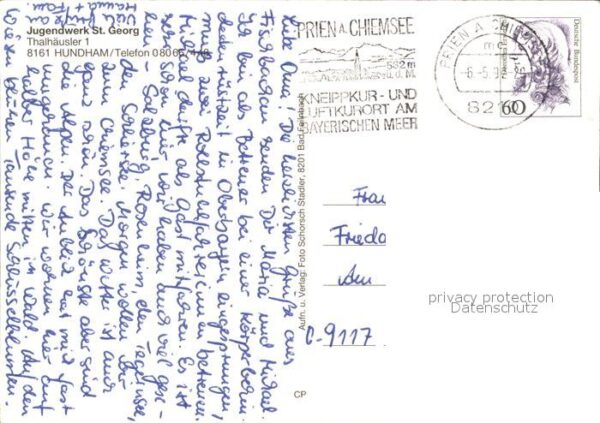 Jugendwerk St. Georg
Thalhäusler 1
8161 HUNDHAM/Telefon
Liebe Oma! Die herzlichsten Grüße aus
Fischbachau senden Dir Maria und Michael.
Ich bin als Betreuer bei einer Körperbehin-
derten Freizeit in Oberbayern eingesprungen,
muß zwei Rollstuhlfahrerinnen betreuen.
Michael durfte als Gast mitfahren. Es ist
sehr schön hier, wir haben auch viel gese-
hen: Salzburg, Rosenheim, den Tegernsee,
den Schliersee. Morgen wollen wir
zum Chiemsee. Das Wetter ist auch
ganz schön. Das Schönste aber sind
die Alpen. Der Anblick hat mich fast
umgeworfen. Wir wohnen hier auf
halber Höhe mitten im Wald. Auf den
Wiesen blühen Tausende Schlüsselblumen.
Viele
Aufn. u. Verlag: Foto Schorsch Stadler, 8201 Bad Feilnbach
CP
PRIEN A. CHIEMSEE
532 m
ü. d. M.
KNEIPPKUR- UND
LUFTKURORT AM
BAYERISCHEN MEER
PRIEN A CHIEMSEE
-6.-5.92
8210
60
Deutsche Bundespost
Frau
Frieda
Am
D-9117
privacy protection
Datenschutz